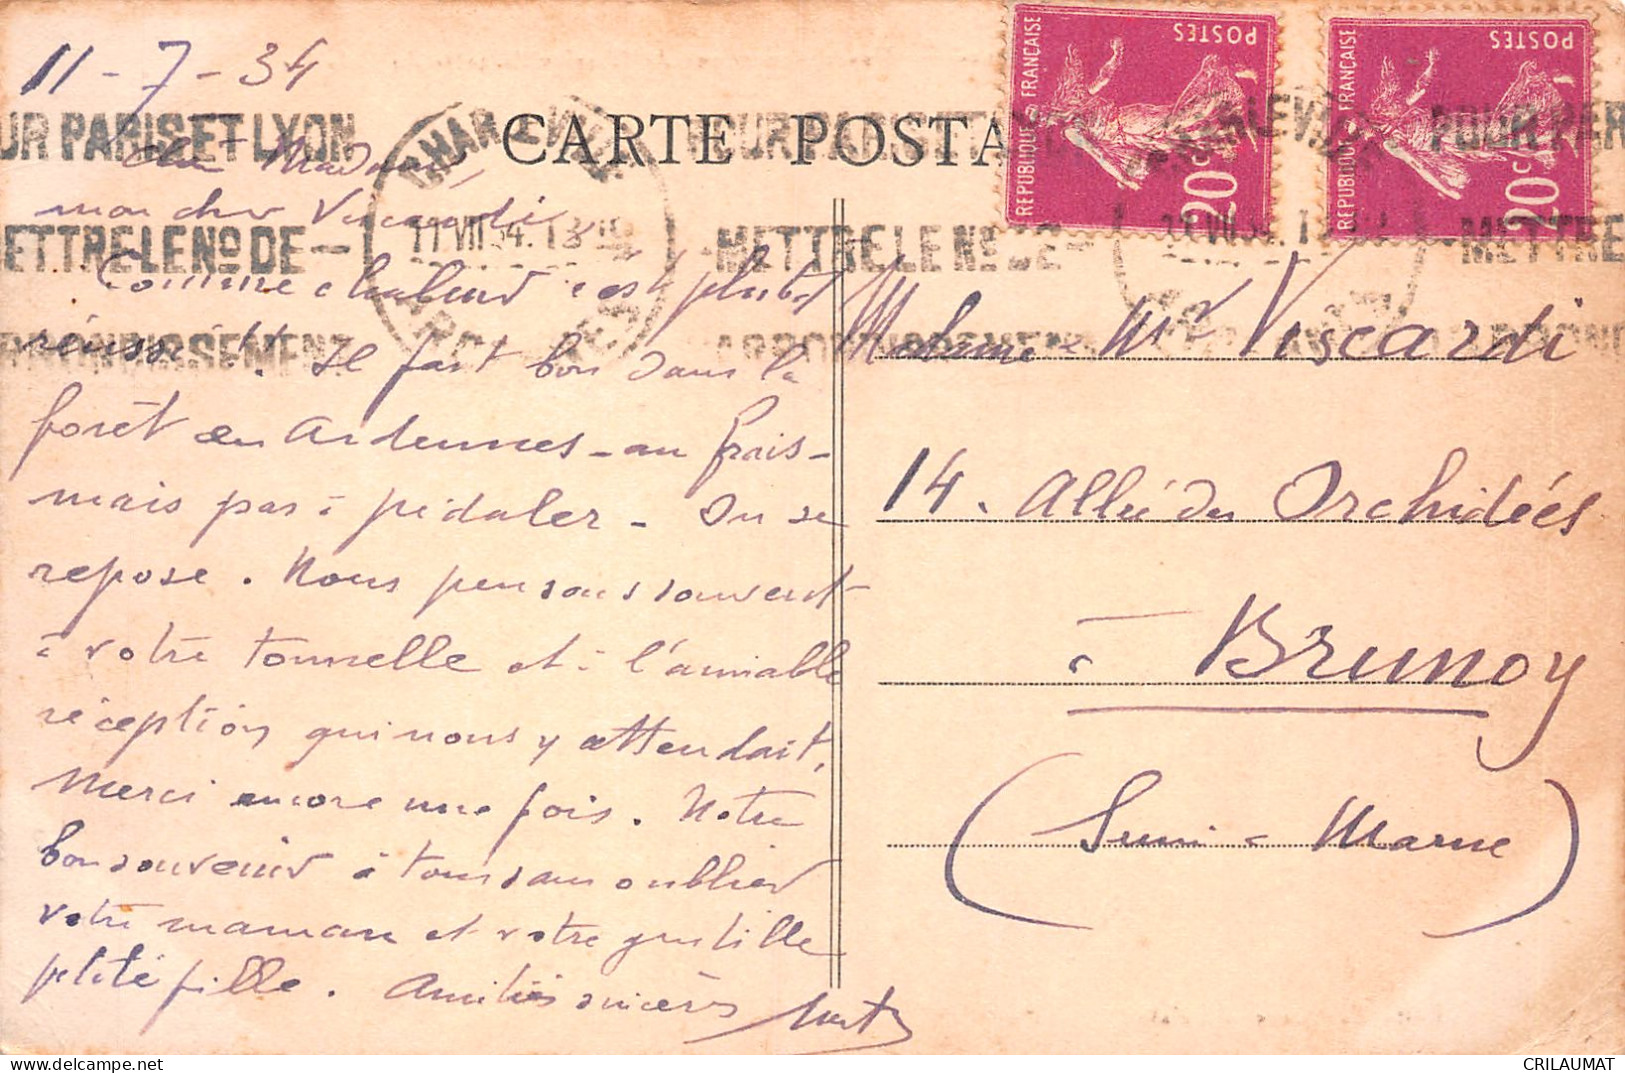 11-7-34
CARTE POSTA
UR PARIS ET LYON
METTRE LE No DE
ARRONDISSEMENT
11 VII 34. 13
POUR PARIS ET LYON
METTRE LE No DE
POUR PAR
METTRE
REPUBLIQUE FRANÇAISE
POSTES
20c
REPUBLIQUE FRANÇAISE
POSTES
20c
Chère Madame,
mon cher Viscardi,
Comme chaleur c'est plutôt
réussi !! Il fait bon dans la
forêt en Ardennes - au frais -
mais pas à pédaler - On se
repose. Nous pensons souvent
à votre tonnelle et à l'amiable
réception qui nous y attendait.
Merci encore une fois. Notre
bon souvenir à tous sans oublier
votre maman et votre gentille
petite fille. Amitiés sincères
Madame & Mr Viscardi
14. Allée des Orchidées
à Brunoy
(Seine & Marne)
CRILAUMAT